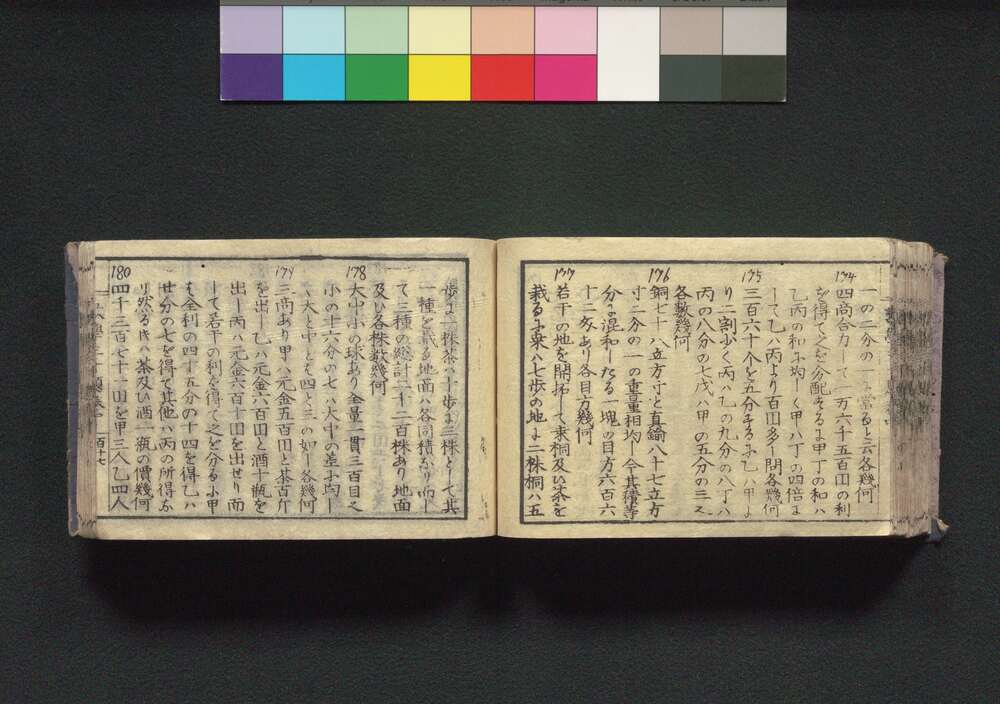 一の二分の一に當ると云各幾何
174
四商合力して一万六千五百円の利
を得て之を分配するに甲丁の和ハ
乙丙の和に均しく甲ハ丁の四倍に
して乙ハ丙より百円多し問各幾何
175
三百六十个を五分するに乙ハ甲よ
り二割少く丙ハ乙の九分の八丁ハ
丙の八分の七戊ハ甲の五分の三之
各數幾何
176
銅七十八立方寸と真鍮八十七立方
寸二分の一の重量相均し今其積等
分に混和したる一塊の目方六百六
十二匁あり各目方幾何
177
若干の地を開拓して桑桐及ひ茶を
栽るに桑ハ七歩の地に二株桐ハ五
歩に一株茶ハ十歩に三株として其
一種を栽る地面ハ各同積なり而し
て三種の總計二千二百株あり地面
及ひ各株數幾何
178
大中小の球あり全量一貫三百目之
小の十六分の七ハ大中の差に均し
く大と中とハ四と三の如し各幾何
179
三商あり甲ハ元金五百円と茶百斤
を出し乙ハ元金六百円と酒十瓶を
出し丙ハ元金六百十円を出せり而
して若干の利を得て之を分るに甲
ハ全利の四十五分の十四を得乙ハ
廿分の七を得て其他ハ丙の所得な
り然るときハ茶及ひ酒一瓶の價幾何
180
四千三百七十一円を甲三人乙四人
百十七